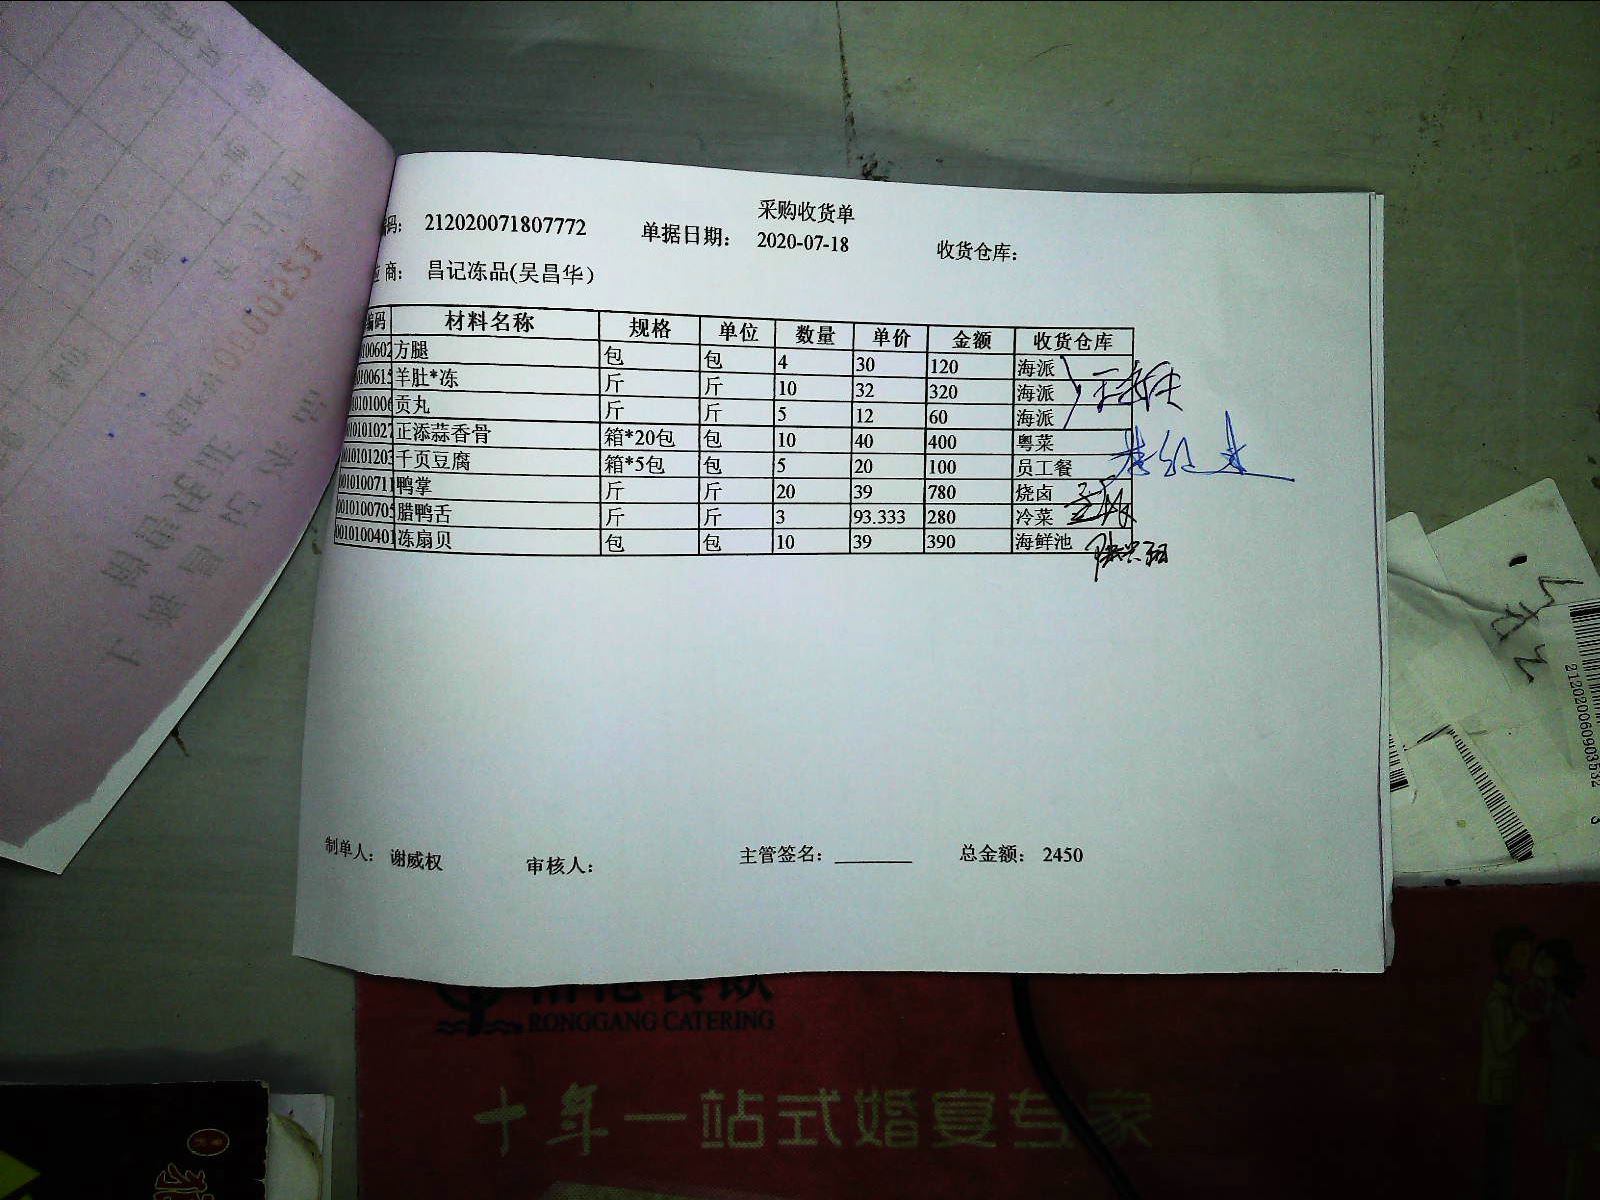 采购收货单
编码: 212020071807772 单据日期: 2020-07-18 收货仓库:
应商: 昌记冻品(吴昌华)
编码 材料名称 规格 单位 数量 单价 金额 收货仓库
0100602 方腿 包 包 4 30 120 海派
0100615 羊肚*冻 斤 斤 10 32 320 海派
0101006 贡丸 斤 斤 5 12 60 海派
0101027 正添蒜香骨 箱*20包 包 10 40 400 粤菜
0101203 千页豆腐 箱*5包 包 5 20 100 员工餐
0010100711 鸭掌 斤 斤 20 39 780 烧卤
0010100705 腊鸭舌 斤 斤 3 93.333 280 冷菜
0010100401 冻扇贝 包 包 10 39 390 海鲜池
制单人: 谢威权 审核人: 主管签名: ________ 总金额: 2450
0000521
212020060903532
RONGGANG CATERING
十年一站式婚宴专家